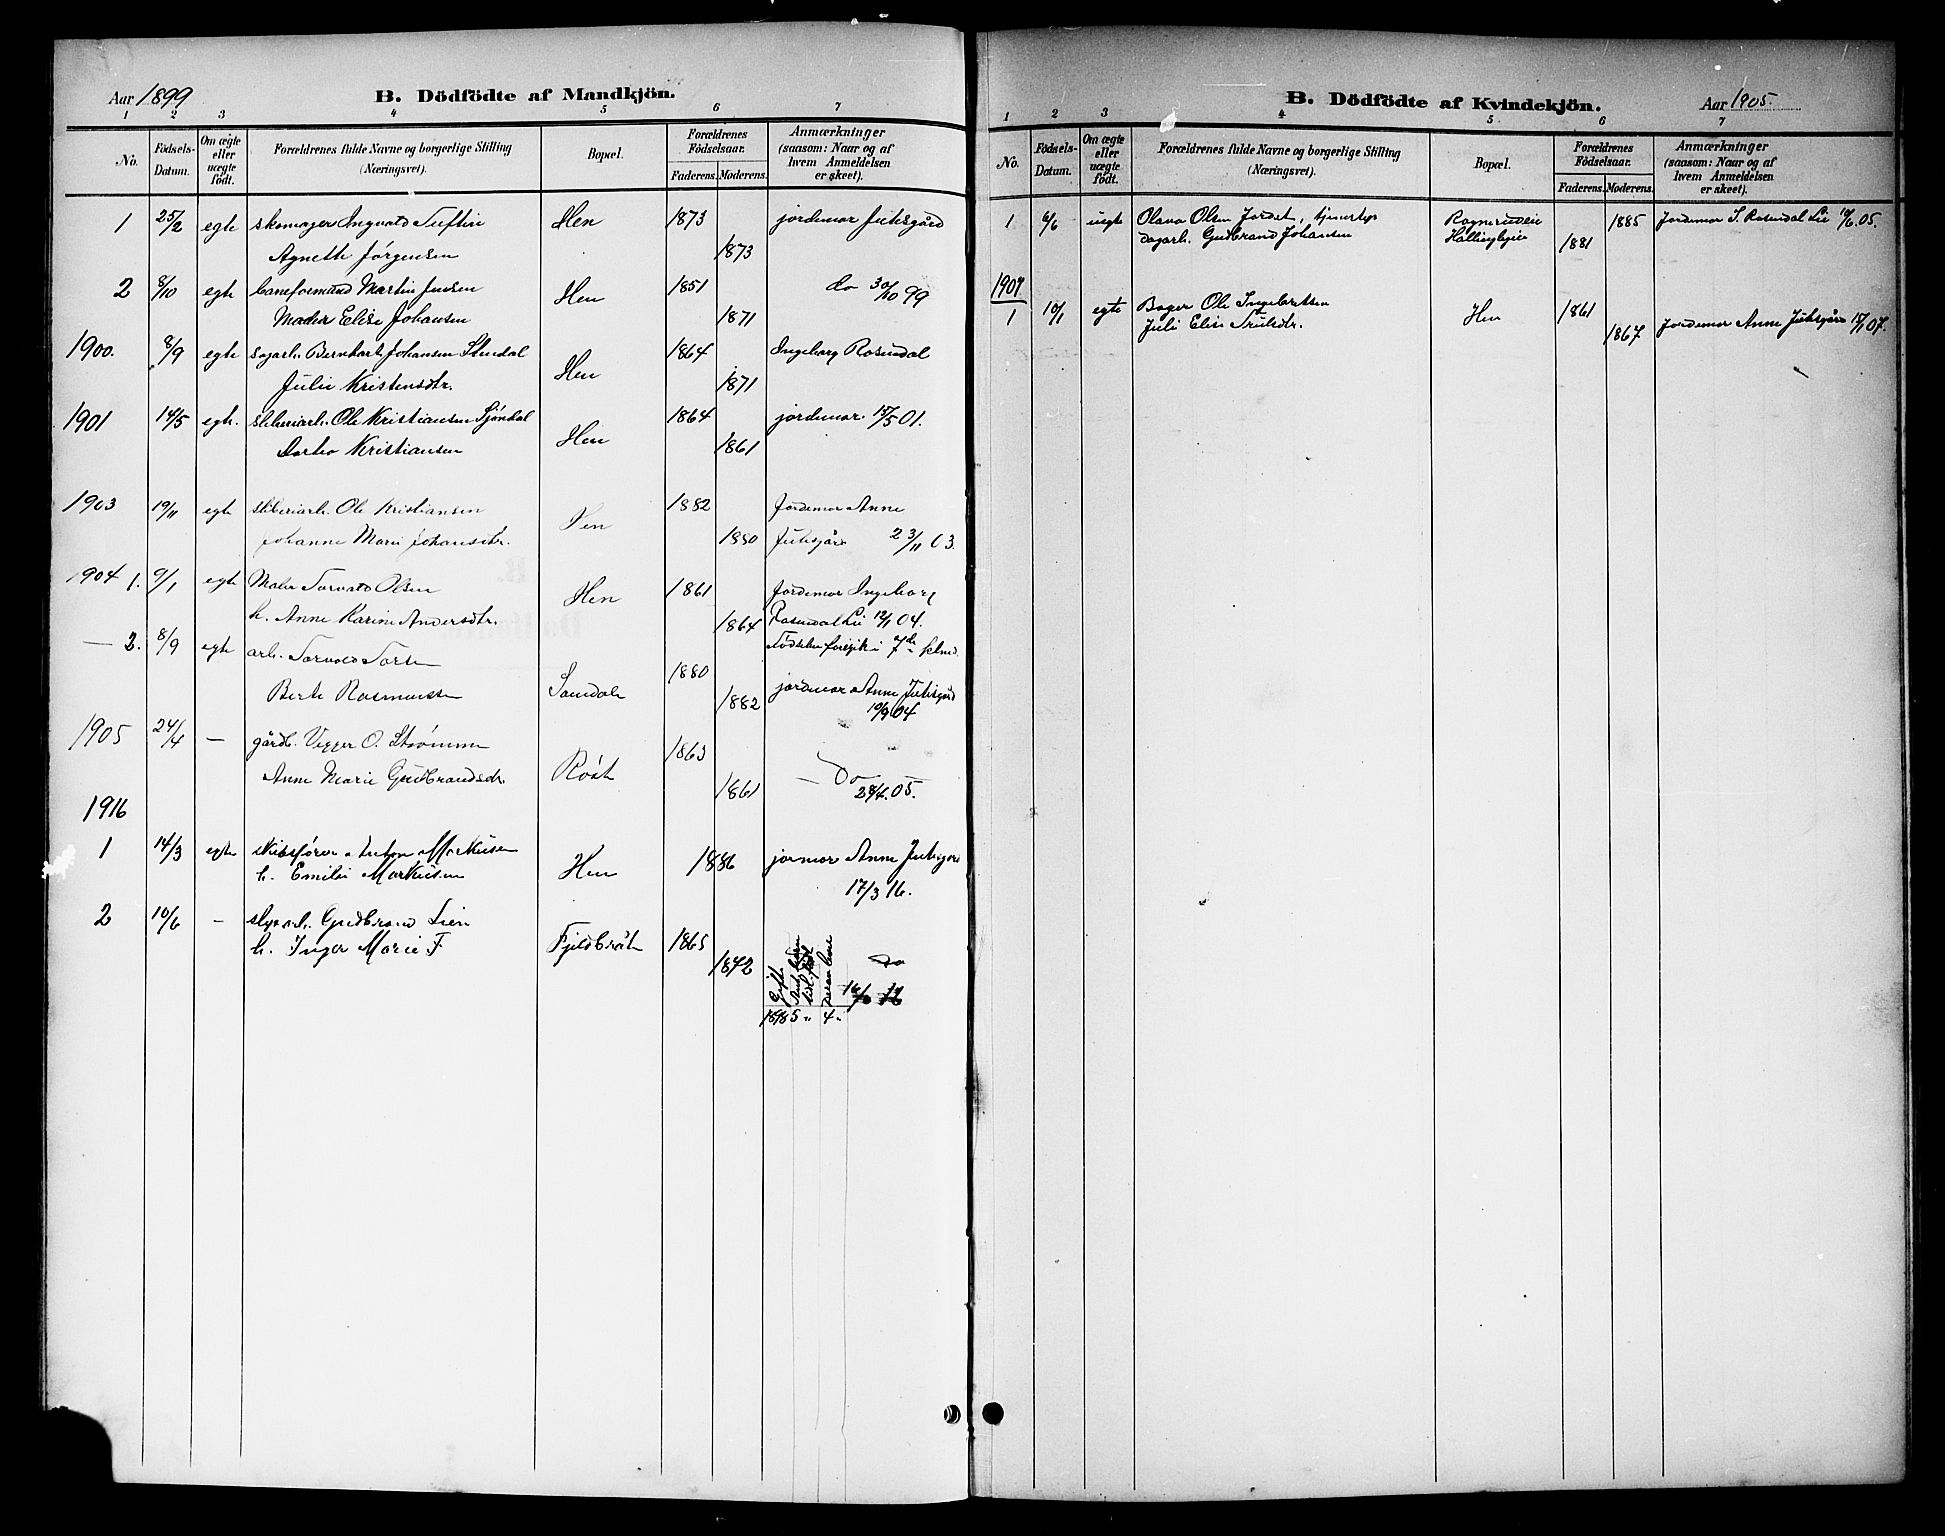 Aar 1899
B. Dödfödte af Mandkjön.
1 2 3 4 5 6 7
No.
Födsels-Datum.
Om ægte eller uægte födt.
Forældrenes fulde Navne og borgerlige Stilling (Næringsvei).
Bopæl.
Forældrenes Födselsaar.
Faderens. Moderens.
Anmærkninger (saasom: Naar og af hvem Anmeldelsen er skeet).
1 25/2 egte skomager Ingvald Tuftin Hen 1873 jordemor Juhsgård
Agnethe Jørgensen 1873
2 8/10 egte Martin Jensen Hen 1851 do 30/10 99
Elise Johansen 1871
1900. 8/9 egte sagarb. Bernhart Johansen Stendal Hen 1864 Ingeborg Rosendal
Julie Kristensdtr. 1871
1901 14/5 egte. sliberiarb. Ole Kristiansen Sjøndal Hen 1864 jordemor 15/5 01.
Kristiansen 1861
1903 19/11 egte sliberiarb. Ole Kristiansen Hen 1882 Jordemor Anne
Johanne Marie Johansdtr. 1880 Juhsgård 23/11 03.
1904 1. 9/1 egte Maler Torvald Olsen Hen 1861 Jordemor Ingeborg
h. Anne Karine Andersdtr. 1864 Rosendal Lie 12/1 04.
Fødselen foregik i 7de
— 2. 8/9 egte arb. Torvald
Berte Rasmussen 1880 jordemor Anne Juhsgård
1882 10/9 04
1905 24/4 — gårdb. Vegger O. Strømmen 1863
Anne Marie Gudbrandsdtr. 1861 — Do
28/4. 05.
1916
1 14/3 egte Skibsfører Anton Markusen Hen 1886 jormor Anne Juhsgård
h. Emilie Markusen 17/3 16.
2 10/6 — Gudbrand Lien
h. Inger Marie F Fjeldbråte 1865 1872 Do
Gift
1895 " 4 "
B. Dödfödte af Kvindekjön.
Aar 1905.
1 2 3 4 5 6 7
No.
Födsels-Datum.
Om ægte eller uægte födt.
Forældrenes fulde Navne og borgerlige Stilling (Næringsvei).
Bopæl.
Forældrenes Födselsaar.
Faderens. Moderens.
Anmærkninger (saasom: Naar og af hvem Anmeldelsen er skeet).
1 6/6 uegte Olava Olsen Jordet, 1885 Jordemor I. Rosendal Lie 10/6. 05.
dagarb. Gudbrand Johansen 1881
1907
1 10/1 egte Bager Ole Ingebretsen Hen 1861
Juli Elise Trulsdtr. 1867 Jordemor Anne Juhsgård 07.